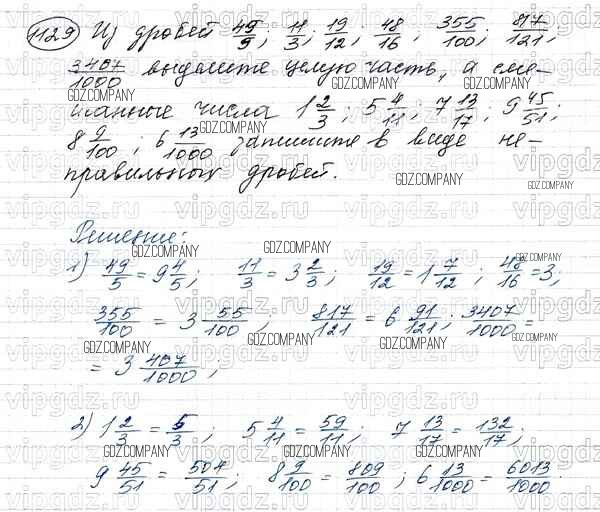 1129 Из дробей 49/9; 11/3; 19/12; 48/16; 355/100; 817/121;
3407/1000 выделите целую часть, а сме-
шанные числа 1 2/3; 5 4/11; 7 13/17; 9 45/51;
8 9/100; 6 13/1000 запишите в виде не-
правильных дробей.
Решение:
1) 49/5 = 9 4/5; 11/3 = 3 2/3; 19/12 = 1 7/12; 48/16 = 3;
355/100 = 3 55/100; 817/121 = 6 91/121; 3407/1000 =
= 3 407/1000;
2) 1 2/3 = 5/3; 5 4/11 = 59/11; 7 13/17 = 132/17;
9 45/51 = 504/51; 8 9/100 = 809/100; 6 13/1000 = 6013/1000.
GDZ.COMPANY
vipgdz.ru